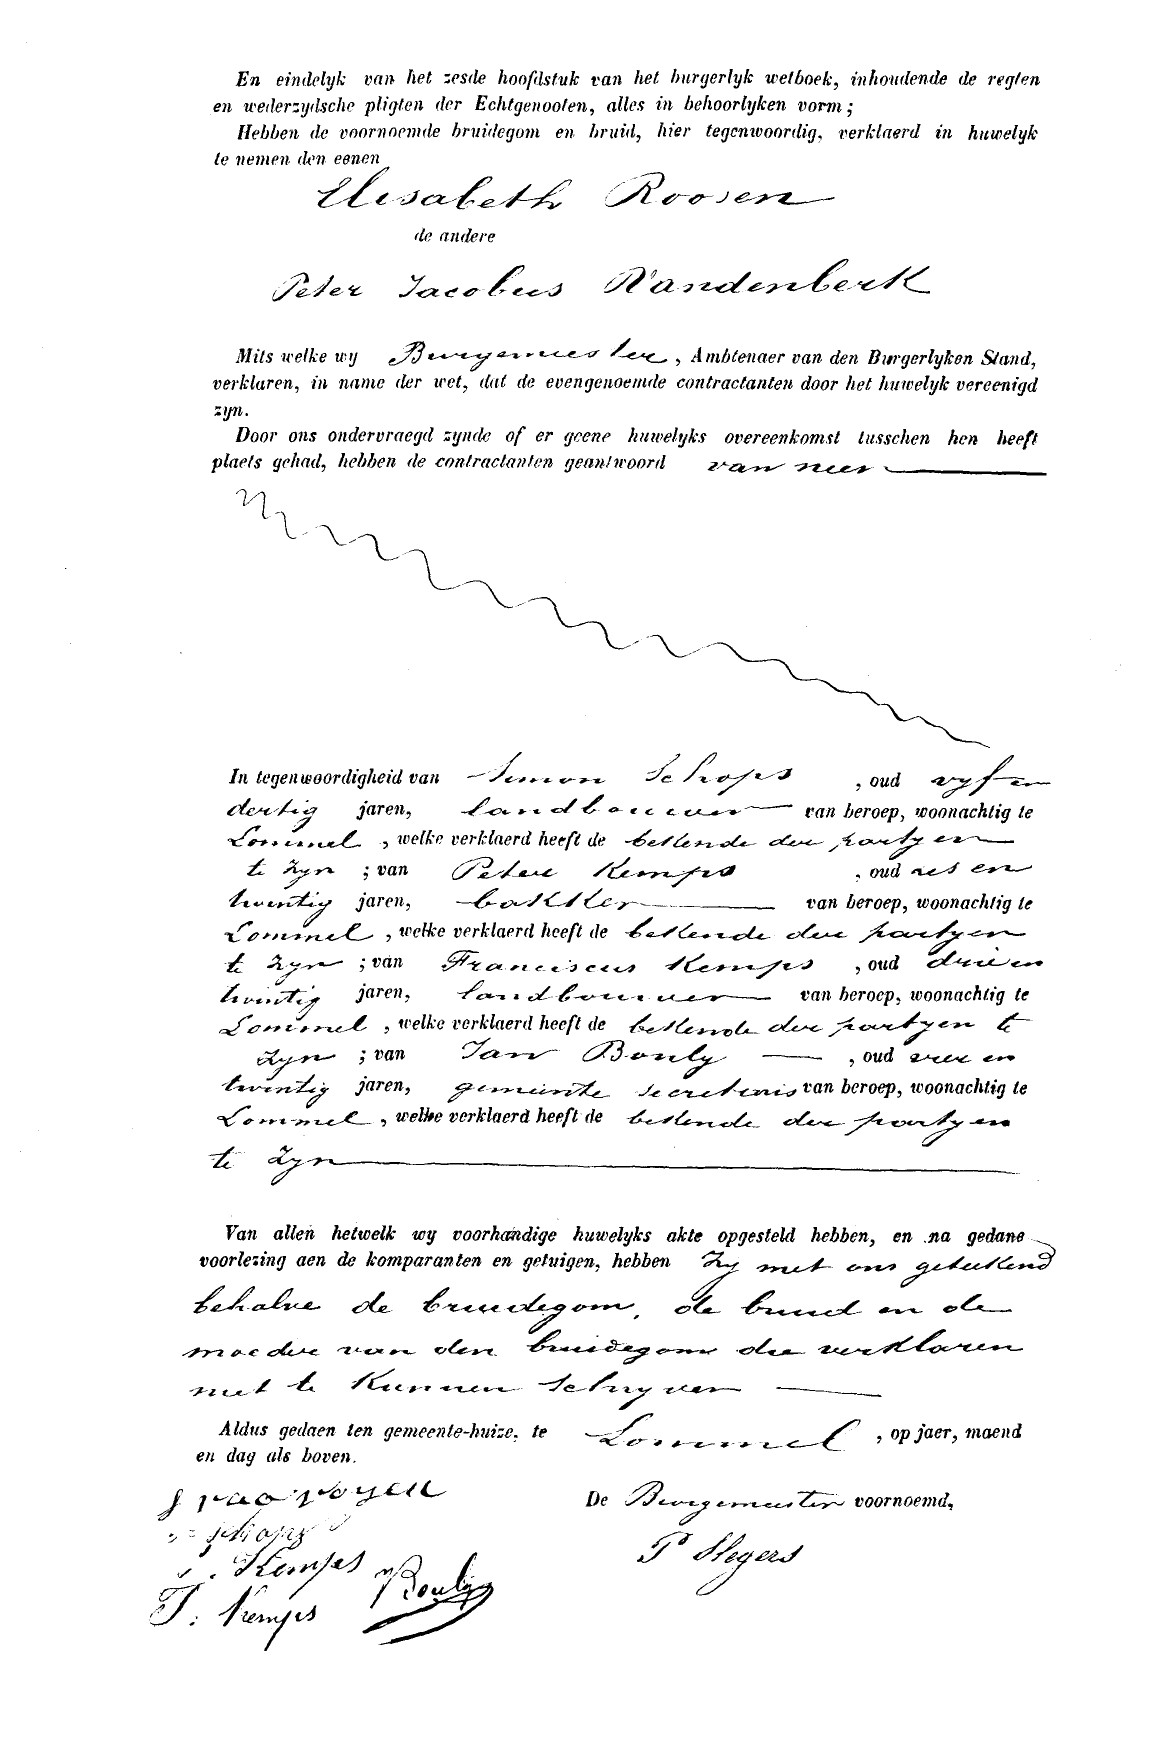 En eindelyk van het zesde hoofdstuk van het burgerlyk wetboek, inhoudende de regten
en wederzydsche pligten der Echtgenooten, alles in behoorlyken vorm ;
Hebben de voornoemde bruidegom en bruid, hier tegenwoordig, verklaerd in huwelyk
te nemen den eenen
Elisabeth Roosen
de andere
Peter Jacobus Vandenberk
Mits welke wy Burgemeester, Ambtenaer van den Burgerlyken Stand,
verklaren, in name der wet, dat de evengenoemde contractanten door het huwelyk vereenigd
zyn.
Door ons ondervraegd zynde of er geene huwelyks overeenkomst tusschen hen heeft
plaets gehad, hebben de contractanten geantwoord van neen
In tegenwoordigheid van Simon Schops , oud vyf en
dertig jaren, landbouwer van beroep, woonachtig te
Lommel , welke verklaerd heeft de bekende der partyen
te zyn ; van Peter Kemps , oud zes en
twintig jaren, bakker van beroep, woonachtig te
Lommel , welke verklaerd heeft de bekende der partyen
te zyn ; van Franciscus Kemps , oud drie en
twintig jaren, landbouwer van beroep, woonachtig te
Lommel , welke verklaerd heeft de bekende der partyen te
zyn ; van Jan Bouly , oud vier en
twintig jaren, gemeente secretaris van beroep, woonachtig te
Lommel , welke verklaerd heeft de bekende der partyen
te zyn
Van allen hetwelk wy voorhandige huwelyks akte opgesteld hebben, en na gedane
voorlezing aen de komparanten en getuigen, hebben zy met ons geteekend
behalve de bruidegom, de bruid en de
moeder van den bruidegom die verklaren
niet te kunnen schryven
Aldus gedaen ten gemeente-huize, te Lommel , op jaer, maend
en dag als boven.
De Burgemeester voornoemd,
Schops
P Slegers
Kemps
Bouly
F. Kemps